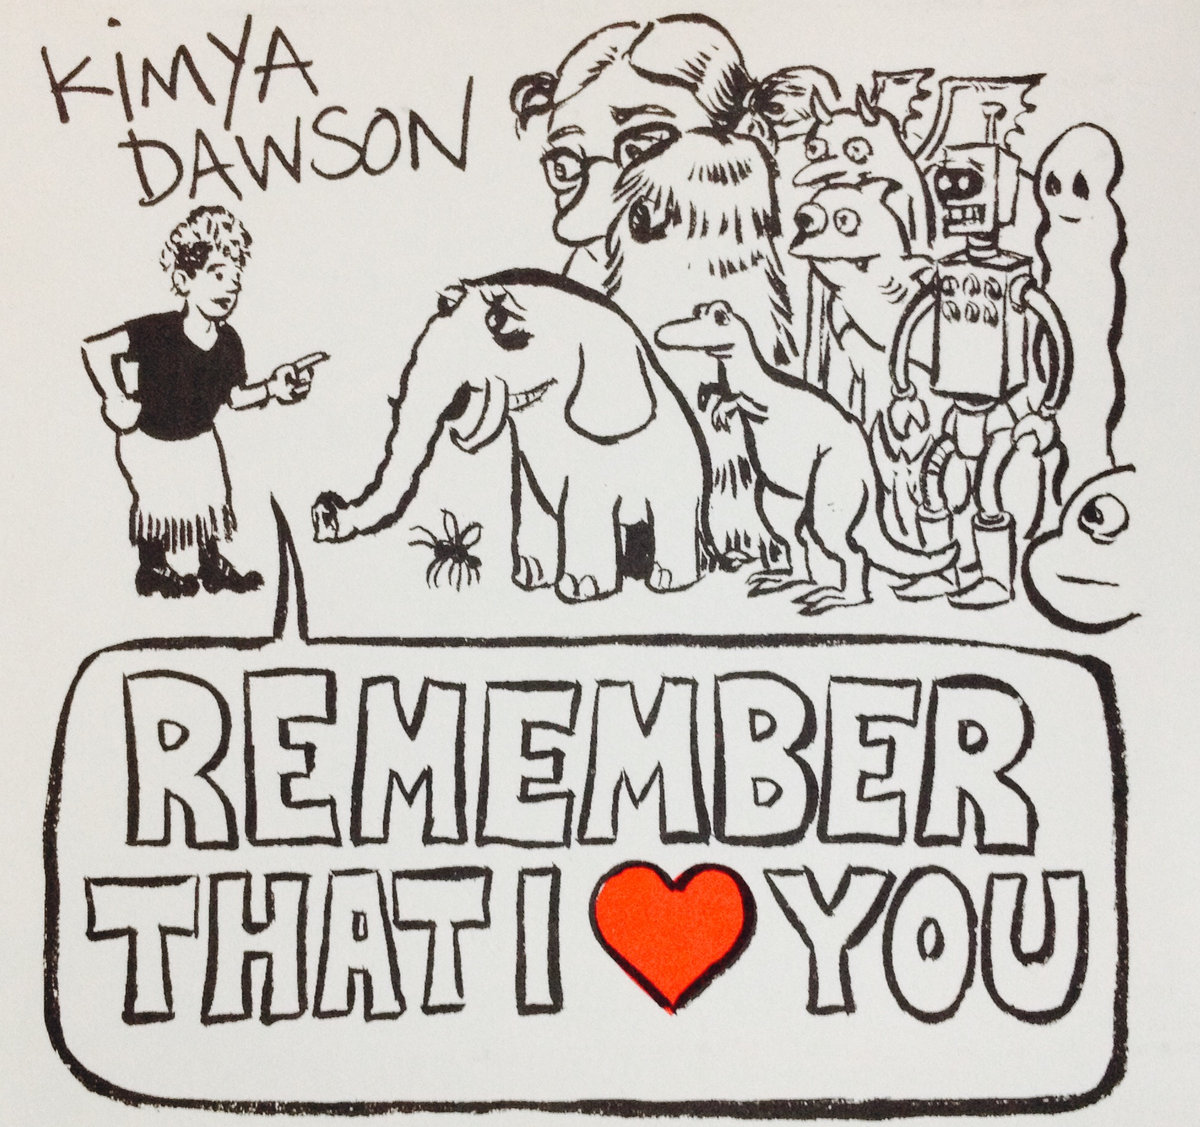 KiMYA
DAWSON
REMEMBER
THAT I ❤ YOU